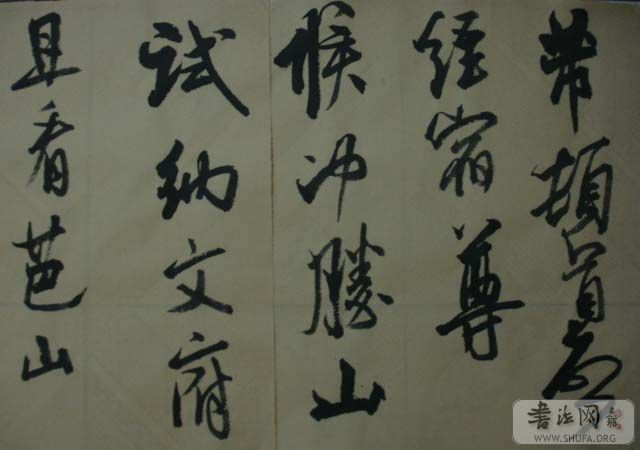 带顿首
经宿尊
候冲胜山
试纳文府
且看芭山
书法网
WWW.SHUFA.ORG